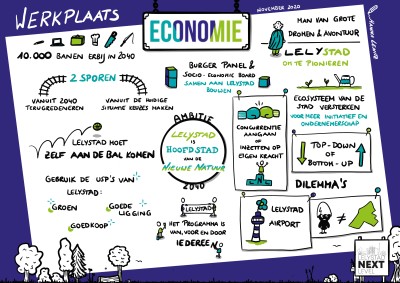 WERKPLAATS
ECONOMIE
NOVEMBER 2020
10.000 BANEN ERBIJ IN 2040
2 SPOREN
VANUIT 2040
TERUGREDENEREN
VANUIT DE HUIDIGE
SITUATIE KEUZES MAKEN
LELYSTAD MOET
ZELF AAN DE BAL KOMEN
GEBRUIK DE USP'S VAN
LELYSTAD:
GROEN
GOEDE
LIGGING
GOEDKOOP
BURGER PANEL &
SOCIO-ECONOMIC BOARD
SAMEN AAN LELYSTAD
BOUWEN
AMBITIE
LELYSTAD
IS
HOOFDSTAD
VAN DE
NIEUWE NATUUR
2040
LELYSTAD
HET PROGRAMMA IS
VAN, VOOR EN DOOR
IEDEREEN
MAN VAN GROTE
DROMEN & AVONTUUR
LELYSTAD
OM TE PIONIEREN
CONCURRENTIE
AANGAAN
OF
INZETTEN OP
EIGEN KRACHT
ECOSYSTEEM VAN DE
STAD VERSTERKEN
VOOR MEER INITIATIEF EN
ONDERNEMERSCHAP
TOP-DOWN
OF
BOTTOM-UP
DILEMMA'S
LELYSTAD
AIRPORT
≠
LELYSTAD
NEXT
LEVEL